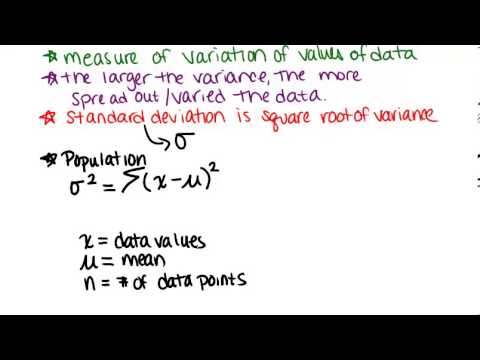 ☆ measure of variation of values of data
☆ the larger the variance, the more
spread out/varied the data.
☆ standard deviation is square root of variance
→ σ
☆ Population
σ² = Σ(x-μ)²
x = data values
μ = mean
n = # of data points